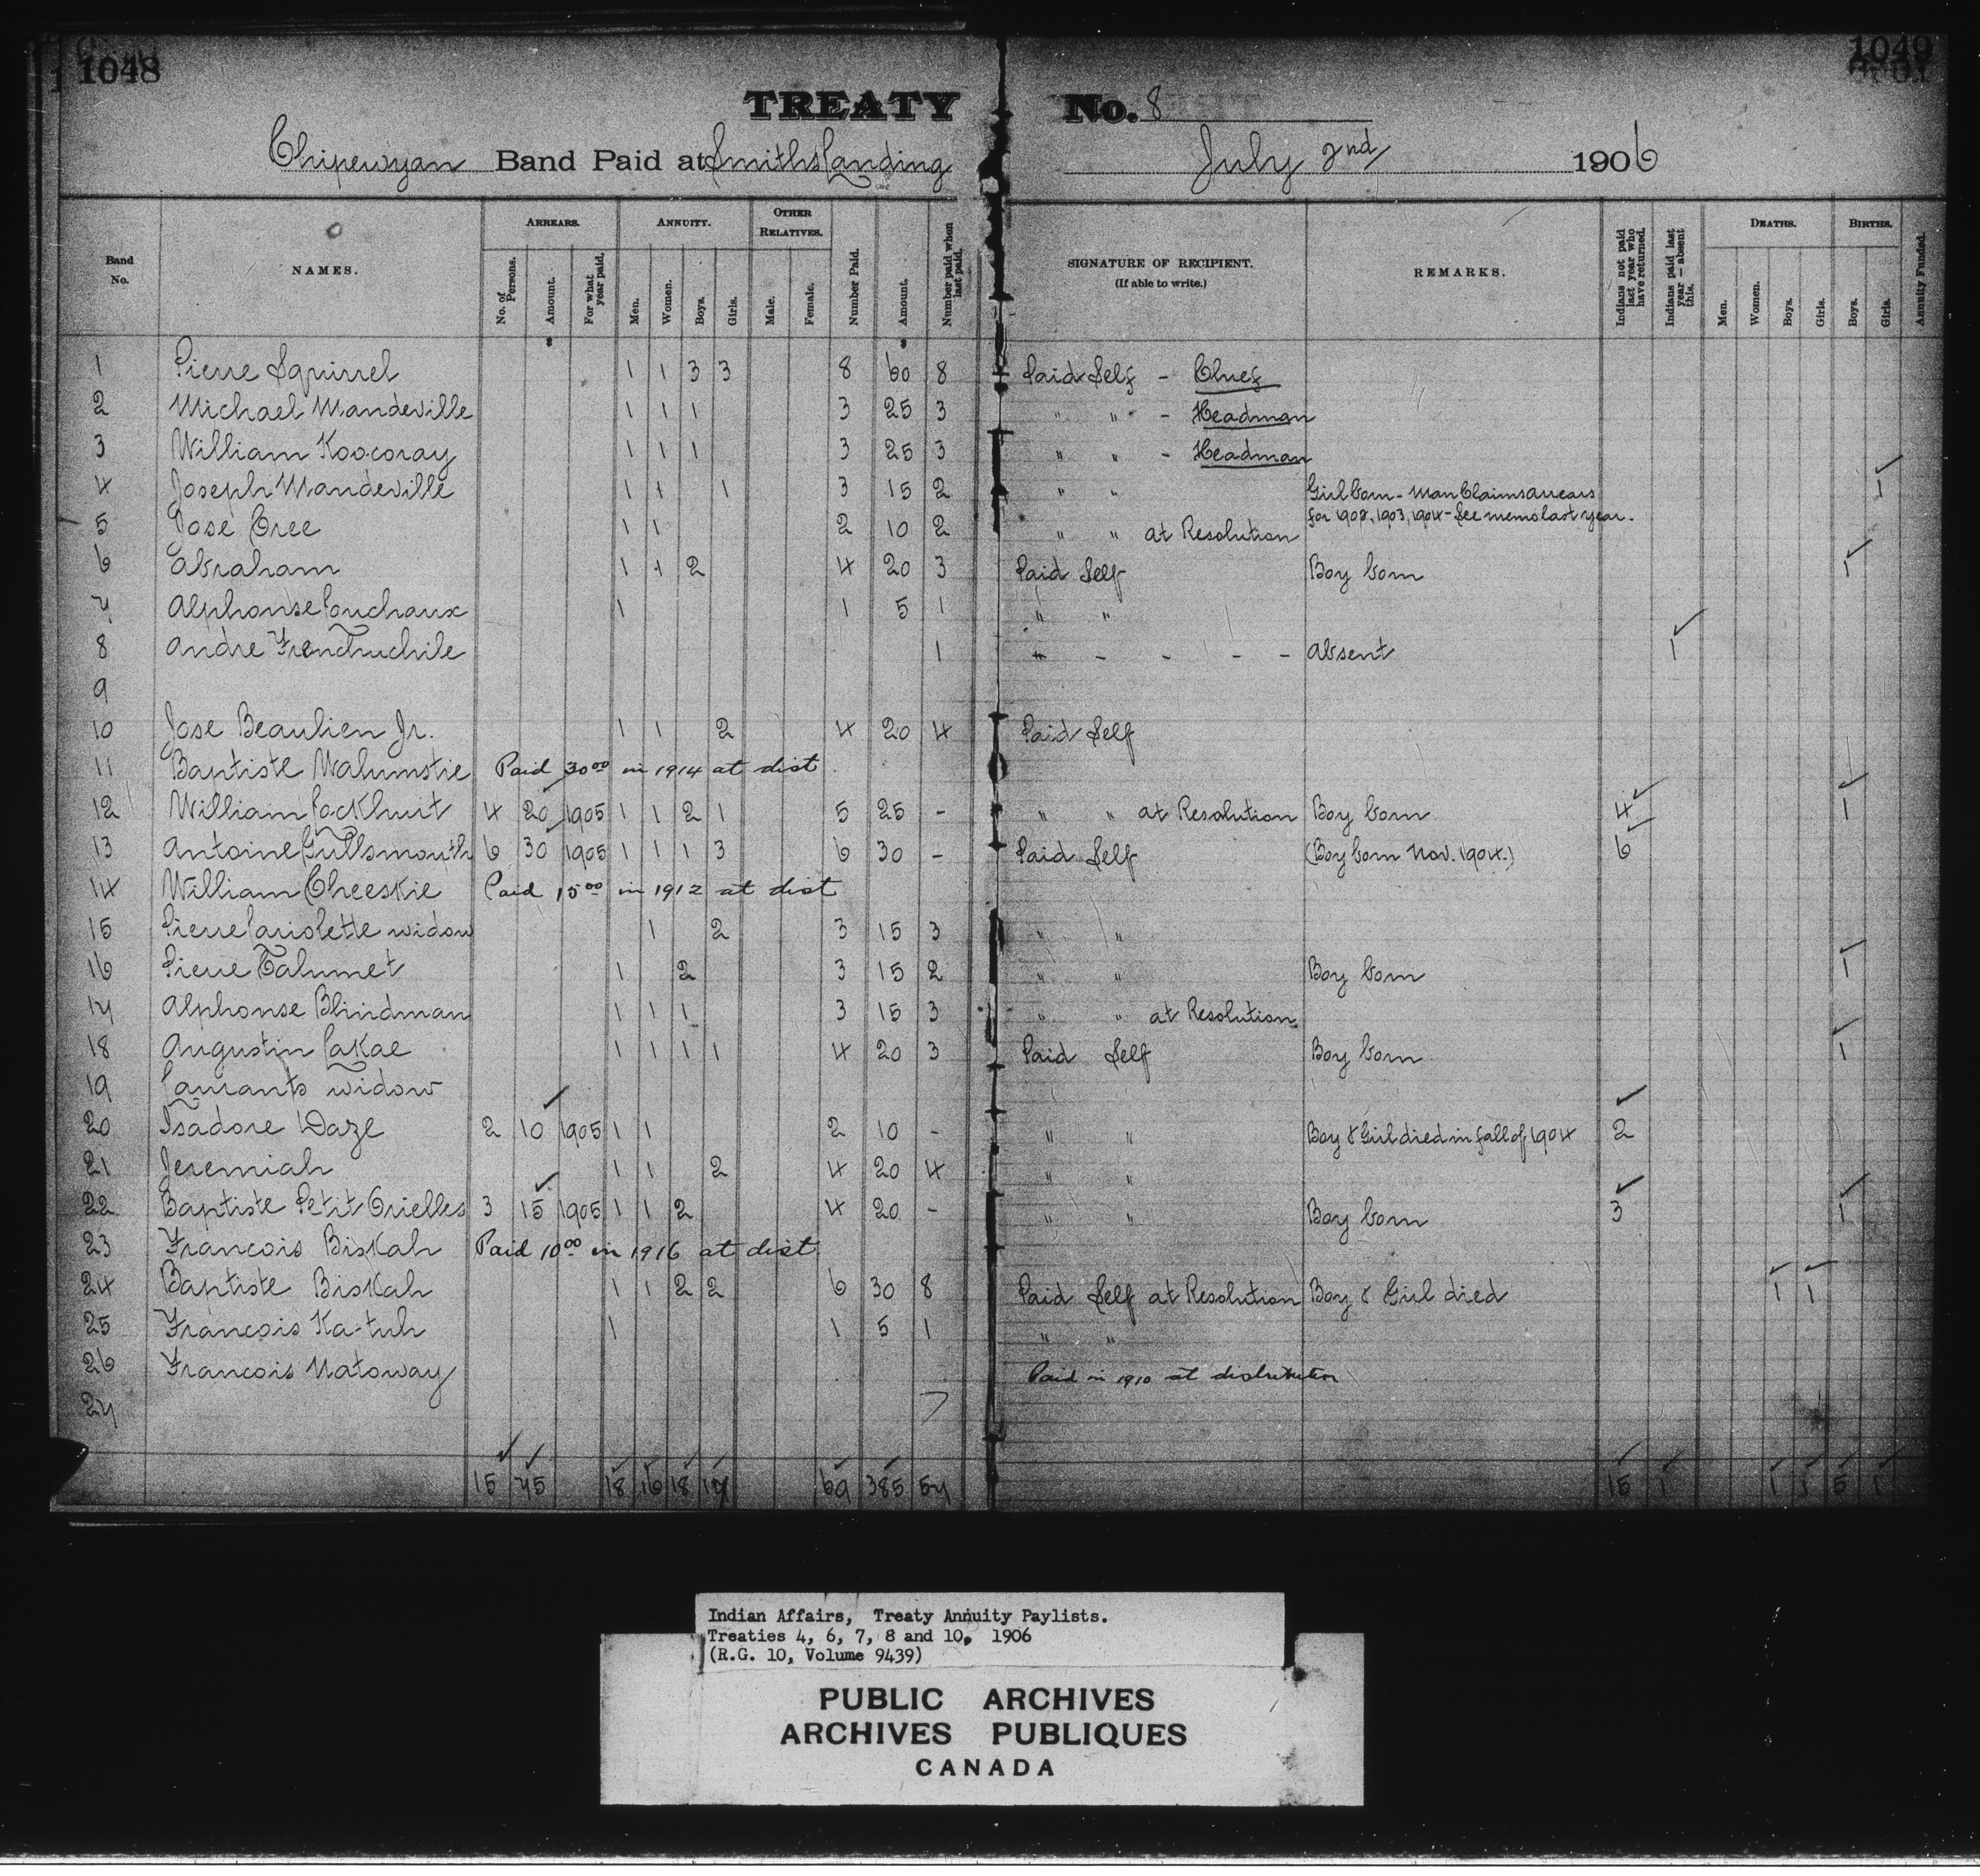 1048
1049
TREATY No. 8
Chipewyan Band Paid at Smiths Landing July 2nd 1906
Band No. NAMES. ARREARS. ANNUITY. OTHER RELATIVES. Number Paid. Amount. Number paid when last paid. SIGNATURE OF RECIPIENT. (If able to write.) REMARKS. Indians not paid last year who have returned. Indians paid last year — absent this. DEATHS. BIRTHS. Annuity Funded.
No. of Persons. Amount. For what year paid. Men. Women. Boys. Girls. Male. Female. Men. Women. Boys. Girls. Boys. Girls.
1 Pierre Squirrel 1 1 3 3 8 60 8 Paid Self - Chief
2 Michael Mandeville 1 1 1 3 25 3 " " - Headman
3 William Koocoray 1 1 1 3 25 3 " " - Headman
4 Joseph Mandeville 1 1 1 3 15 2 " " Girl born - Man Claims arrears 1
for 1902, 1903, 1904 - See memo last year.
5 Jose Cree 1 1 2 10 2 " " at Resolution
6 Abraham 1 1 2 4 20 3 Paid Self Boy born 1
7 Alphonse Louchaux 1 1 5 1 " "
8 Andre Frenchuchile 1 - - - - - Absent 1
9
10 Jose Beaulieu Jr. 1 1 2 4 20 4 Paid Self
11 Baptiste Walumstie Paid 30 00 in 1914 at dist
12 William Lockhuit 4 20 1905 1 1 2 1 5 25 - " " at Resolution Boy born 4 1
13 Antoine Gullsmouth 6 30 1905 1 1 1 3 6 30 - Paid Self (Boy born Nov. 1904.) 6
14 William Cheeskie Paid 15 00 in 1912 at dist
15 Pierre Lariolette widow 1 2 3 15 3 " "
16 Pierre Talumet 1 2 3 15 2 " " Boy born 1
17 Alphonse Blindman 1 1 1 3 15 3 " " at Resolution
18 Augustin Lakae 1 1 1 1 4 20 3 Paid Self Boy born 1
19 Laurants widow
20 Isadore Daze 2 10 1905 1 1 2 10 - " " Boy & Girl died in fall of 1904 2
21 Jeremiah 1 1 2 4 20 4 " "
22 Baptiste Petit Orielles 3 15 1905 1 1 2 4 20 - " " Boy born 3 1
23 Francois Biskah Paid 10 00 in 1916 at dist
24 Baptiste Biskah 1 1 2 2 6 30 8 Paid Self at Resolution Boy & Girl died 1 1
25 Francois Ka-tuh 1 1 5 1 " "
26 Francois Natoway Paid in 1910 at distribution
27
15 75 18 16 18 17 69 385 57 15 1 1 1 5 1
Indian Affairs, Treaty Annuity Paylists.
Treaties 4, 6, 7, 8 and 10, 1906
(R.G. 10, Volume 9439)
PUBLIC ARCHIVES
ARCHIVES PUBLIQUES
CANADA